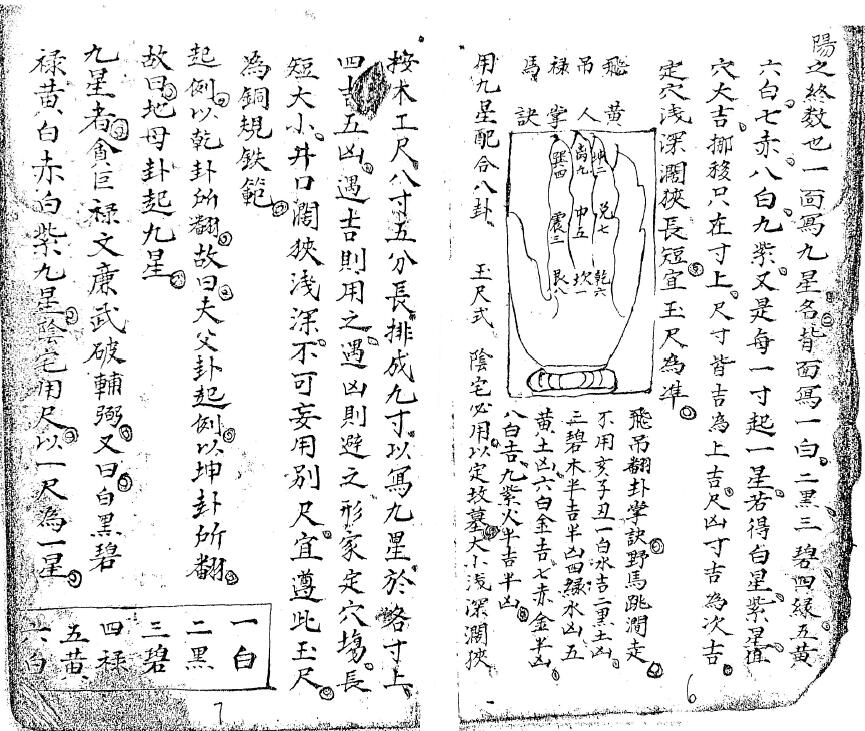 陽之終数也一面寫九星名背面寫一白二黒三碧四緑五黄
六白七赤八白九紫又是每一寸起一星若得白星紫星值
穴大吉挪移只在寸上尺寸皆吉為上吉尺凶寸吉為次吉
定穴浅深濶狹長短宜玉尺為準
飛吊禄馬
黄人掌訣
巽四 離九 坤二
震三 中五 兌七
艮八 坎一 乾六
飛吊翻卦掌訣野馬跳澗走
不用亥子丑一白水吉二黒土凶
三碧木半吉半凶四緑水凶五
黄土凶六白金吉七赤金半凶
八白吉九紫火半吉半凶
用九星配合八卦 玉尺式 陰宅必用以定坟墓大小浅深濶狹
6
按木工尺八寸五分長排成九寸以寫九星於
寸上
四吉五凶遇吉則用之遇凶則避之形家定穴塲長
短大小井口濶狹浅深不可妄用別尺宜遵此玉尺
為銅規鉄範
起例以乾卦所翻故曰天父卦起例以坤卦所翻
故曰地母卦起九星
九星者貪巨禄文廉武破輔弼又曰白黒碧
禄黄白赤白紫九星陰宅用尺以一尺為一星
一白
二黒
三碧
四禄
五黄
六白
7